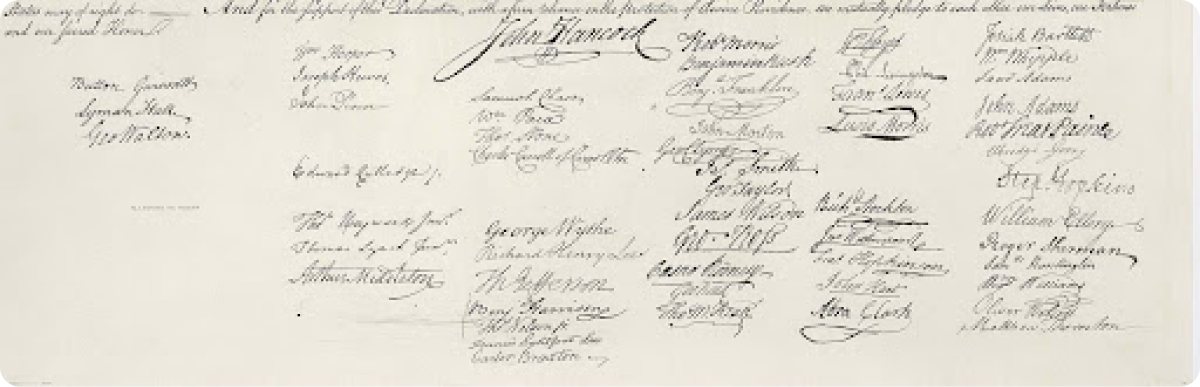 States may of right do. And for the support of this Declaration, with a firm reliance on the protection of divine Providence, we mutually pledge to each other our Lives, our Fortunes
and our sacred Honor.
Button Gwinnett
Lyman Hall
Geo Walton.
Wm Hooper
Joseph Hewes,
John Penn
Edward Rutledge /.
Thos Heyward Junr.
Thomas Lynch Junr.
Arthur Middleton
John Hancock
Samuel Chase
Wm Paca
Thos Stone
Charles Carroll of Carrollton
George Wythe
Richard Henry Lee
Th Jefferson
Benj Harrison
Thos Nelson jr.
Francis Lightfoot Lee
Carter Braxton
Robt Morris
Benjamin Rush
Benj. Franklin
John Morton
Geo Clymer
Jas. Smith
Geo. Taylor
James Wilson
Geo. Ross
Caesar Rodney
Geo Read
Tho M:Kean
Lewis Morris
Richd. Stockton
Jno Witherspoon
Fras. Hopkinson
John Hart
Abra Clark
Josiah Bartlett
Wm Whipple
Saml Adams
John Adams
Robt Treat Paine
Elbridge Gerry
Step. Hopkins
William Ellery
Roger Sherman
Saml Huntington
Wm Williams
Oliver Wolcott
Matthew Thornton